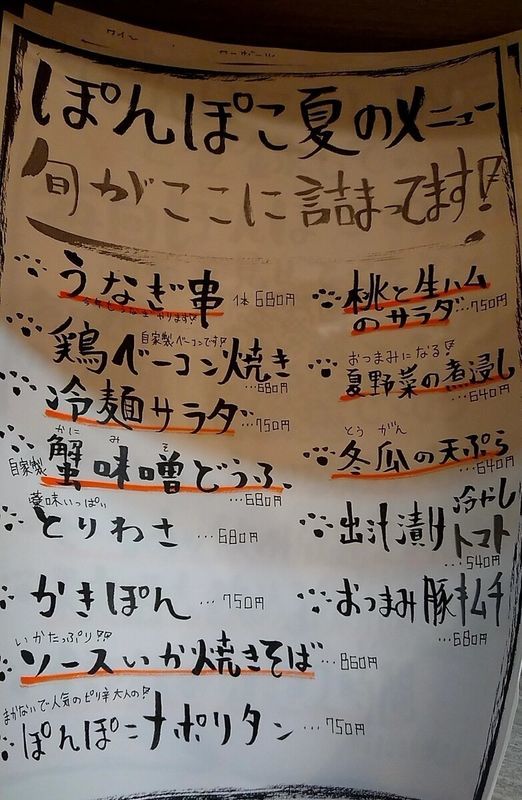 ワイン
ぽんぽこ夏のメニュー
旬がここに詰まってます!
うなぎ串 1本 680円
自家製ベーコンです!
鶏ベーコン焼き
…680円
冷麺サラダ …750円
かに みそ
自家製 蟹味噌どうふ、
…680円
薬味いっぱい
とりわさ …680円
かきぽん …750円
いかたっぷり!!
ソースいか焼きそば …860円
まかないで人気のピリ辛大人の!
ぽんぽこナポリタン …750円
桃と生ハム
のサラダ …750円
おつまみになる!
夏野菜の煮浸し
…640円
とうがん
冬瓜の天ぷら
…640円
出汁漬け冷やし
トマト
…540円
おつまみ豚キムチ
…680円